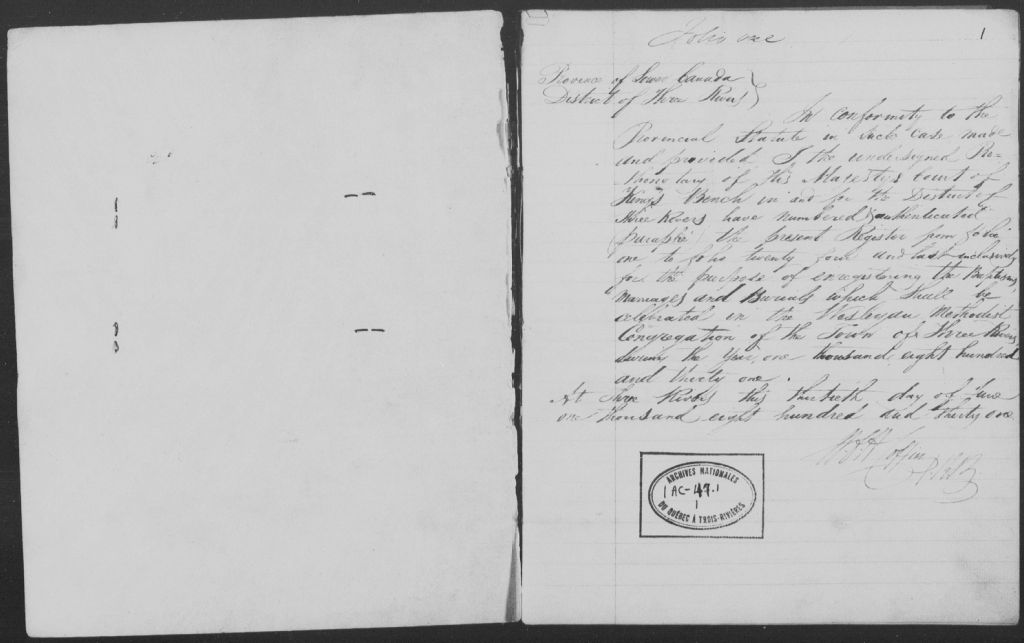 Folio one
1
Province of Lower Canada
District of Three Rivers
In conformity to the
Provincial Statute in such case made
and provided I, the undersigned Pro-
thonotary of His Majesty's Court of
King's Bench in and for the District of
Three Rivers have numbered (authenticated
(paraphé) the present Register from folio
one to folio twenty four and last inclusively
for the purpose of enregistering the Baptisms,
Marriages and Burials which shall be
celebrated in the Wesleyan Methodist
Congregation of the Town of Three Rivers
during the Year, one thousand eight hundred
and thirty one.
At Three Rivers this thirtieth day of June
one thousand eight hundred and thirty one
Coffin
ARCHIVES NATIONALES
1 AC-47.1
1
DU QUÉBEC À TROIS-RIVIÈRES